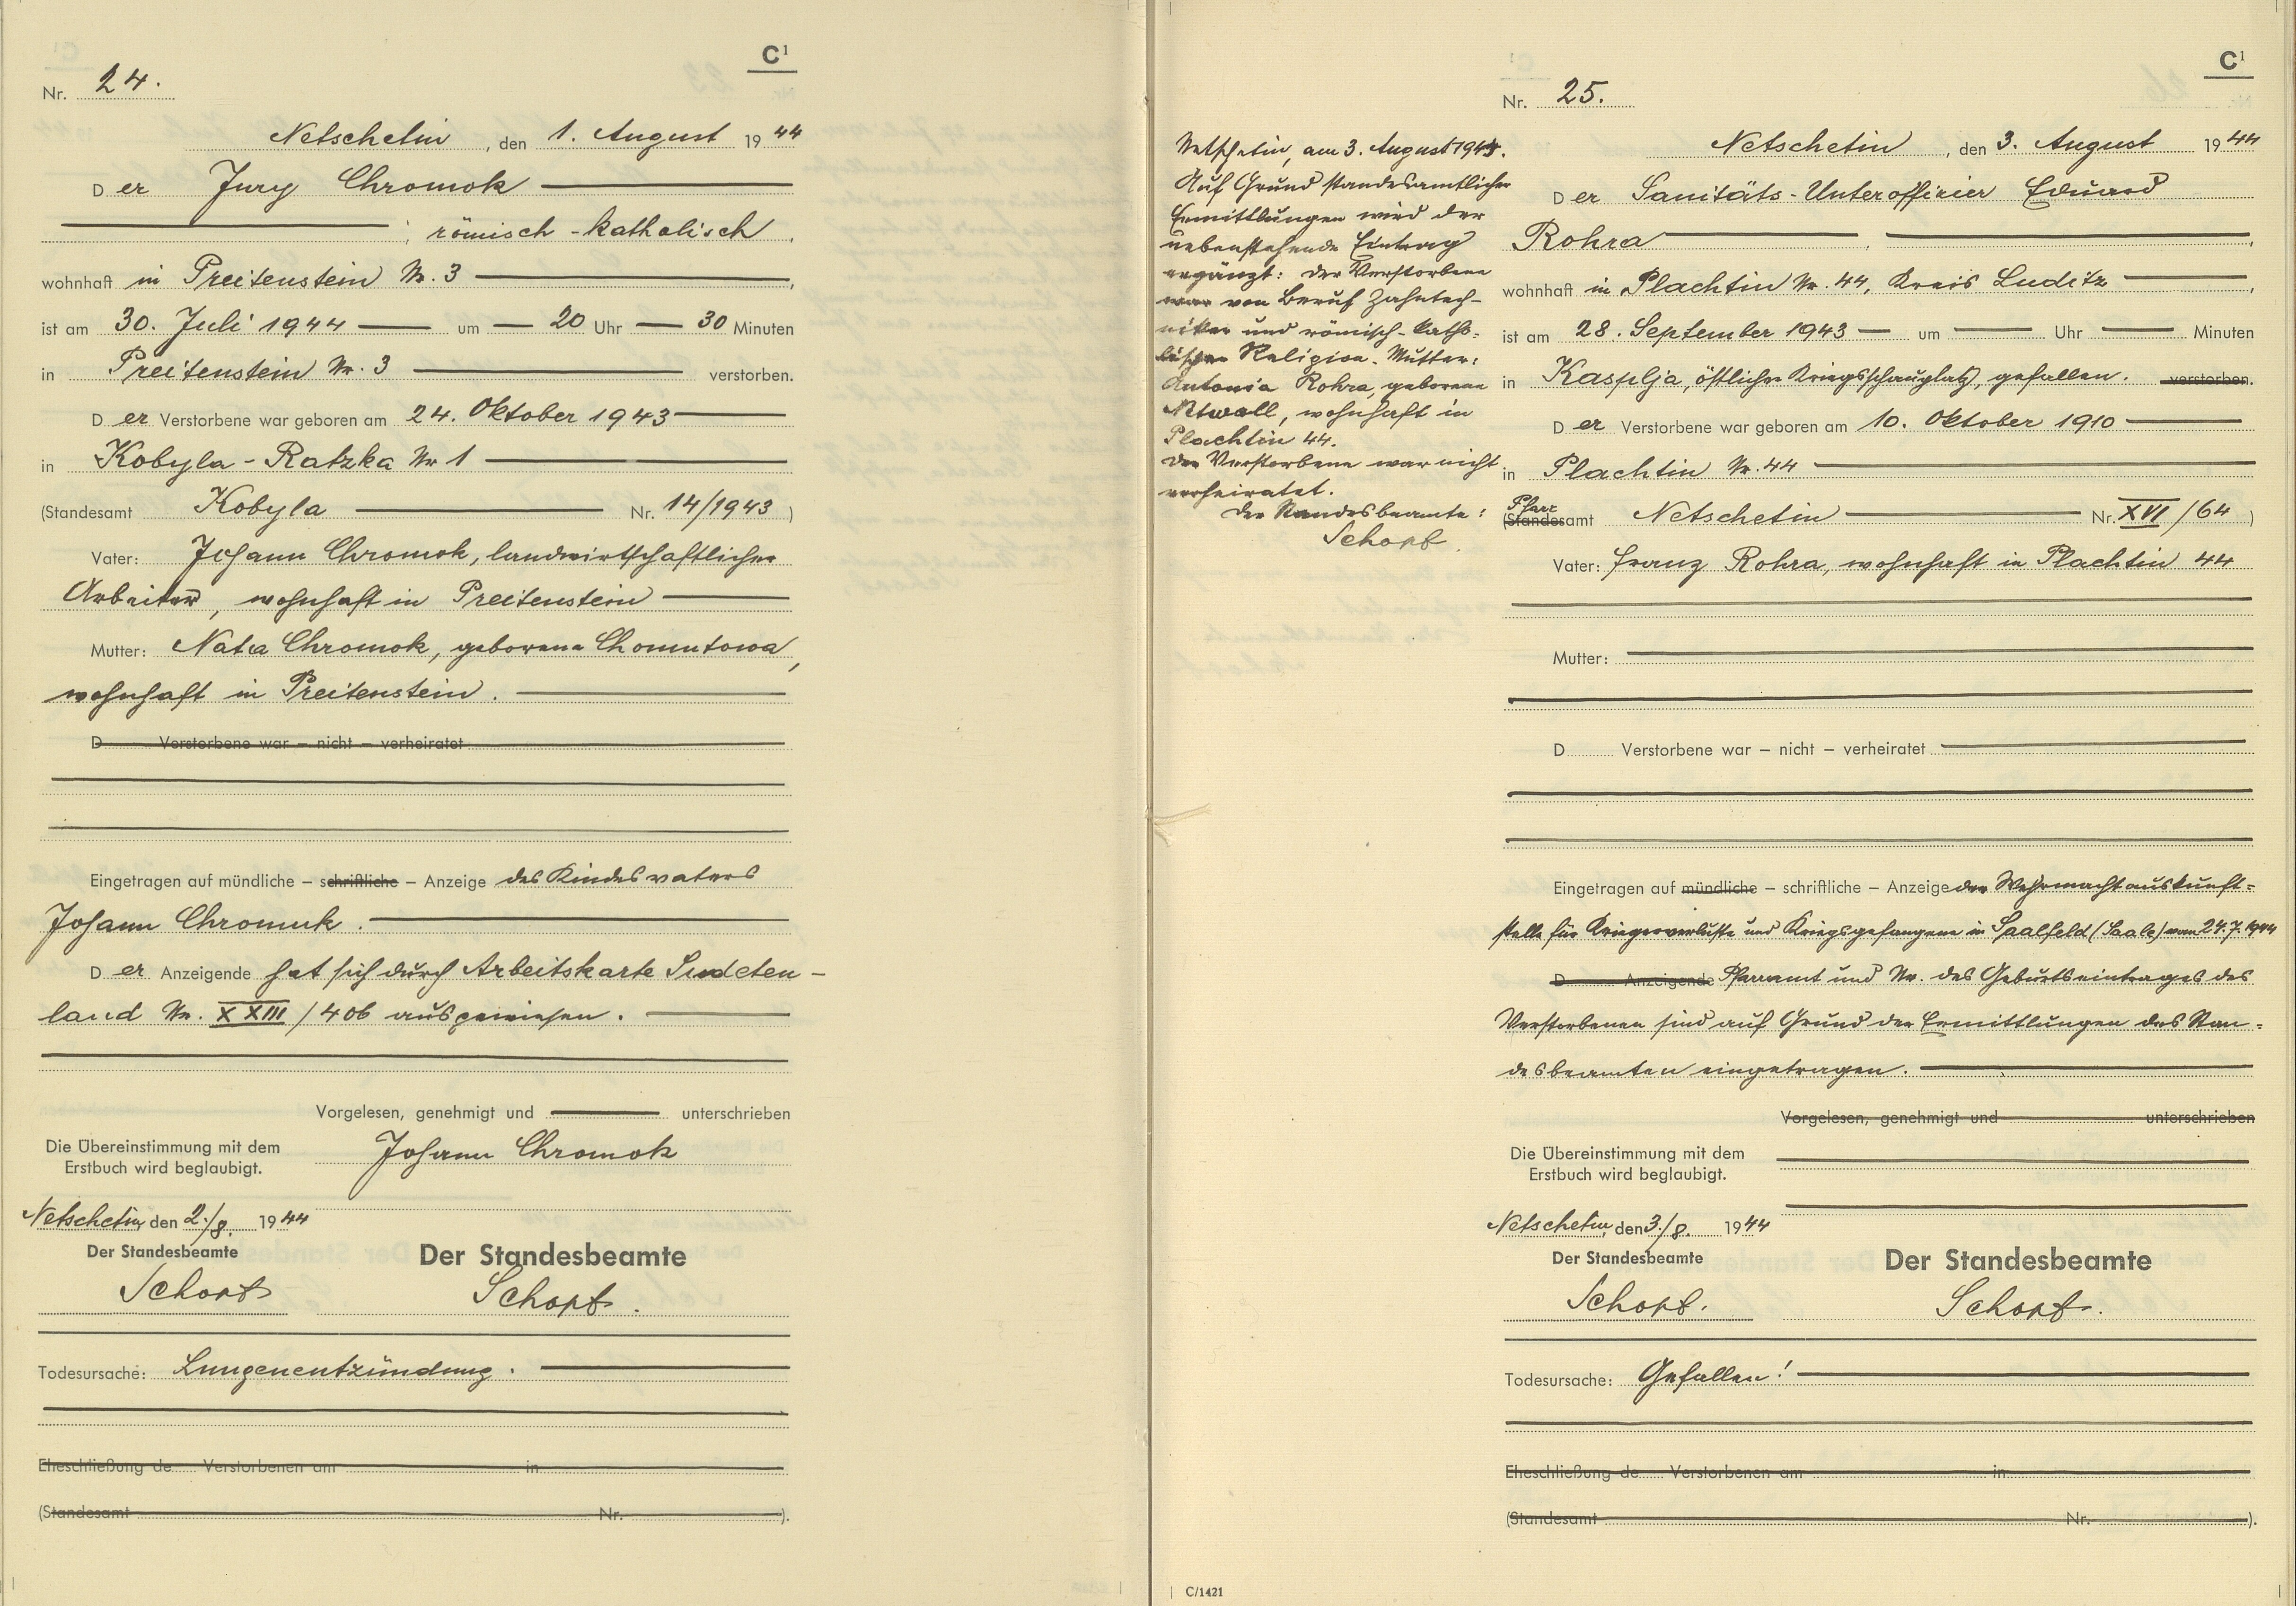 C¹
Nr. 24.
Netschetin, den 1. August 1944
Der Jury Chromok
, römisch-katholisch,
wohnhaft in Preitenstein Nr. 3,
ist am 30. Juli 1944 um 20 Uhr 30 Minuten
in Preitenstein Nr. 3 verstorben.
Der Verstorbene war geboren am 24. Oktober 1943
in Kobyla-Ratzka Nr 1
(Standesamt Kobyla Nr. 14/1943)
Vater: Johann Chromok, landwirtschaftlicher
Arbeiter, wohnhaft in Preitenstein
Mutter: Nata Chromok, geborene Chomutowa,
wohnhaft in Preitenstein.
D Verstorbene war – nicht – verheiratet
Eingetragen auf mündliche – schriftliche – Anzeige des Kindesvaters
Johann Chromuk.
Der Anzeigende hat sich durch Arbeitskarte Sudeten-
land Nr. XXIII/406 ausgewiesen.
Vorgelesen, genehmigt und unterschrieben
Johann Chromok
Die Übereinstimmung mit dem
Erstbuch wird beglaubigt.
Netschetin, den 2./8. 1944
Der Standesbeamte
Schopf
Der Standesbeamte
Schopf.
Todesursache: Lungenentzündung.
Eheschließung de Verstorbenen am in
(Standesamt Nr. ).
C¹
Nr. 25.
Netschetin, am 3. August 1944.
Auf Grund standesamtlicher
Ermittlungen wird der
nebenstehende Eintrag
ergänzt: Der Verstorbene
war von Beruf Zahntech-
niker und römisch-katho-
lischer Religion. Mutter:
Antonia Rohra, geborene
wohnhaft in
Plachtin 44.
Der Verstorbene war nicht
verheiratet.
Der Standesbeamte:
Schopf.
Netschetin, den 3. August 1944
Der Sanitäts-Unteroffizier Eduard
Rohra, ,
wohnhaft in Plachtin Nr. 44, Kreis Luditz,
ist am 28. September 1943 um Uhr Minuten
in Kasplja, östlicher Kriegsschauplatz, gefallen. verstorben.
Der Verstorbene war geboren am 10. Oktober 1910
in Plachtin Nr. 44
Pfarr
(Standesamt Netschetin Nr. XVI/64)
Vater: Franz Rohra, wohnhaft in Plachtin 44
Mutter:
D Verstorbene war – nicht – verheiratet
Eingetragen auf mündliche – schriftliche – Anzeige der Wehrmachtauskunft-
stelle für Kriegerverluste und Kriegsgefangene in Saalfeld (Saale) vom 24.7.1944
D Anzeigende Pfarramt und Nr. des Geburtseintrages des
Verstorbenen sind auf Grund der Ermittlungen des Stan-
desbeamten eingetragen.
Vorgelesen, genehmigt und unterschrieben
Die Übereinstimmung mit dem
Erstbuch wird beglaubigt.
Netschetin, den 3./8. 1944
Der Standesbeamte
Schopf.
Der Standesbeamte
Schopf.
Todesursache: Gefallen!
Eheschließung de Verstorbenen am in
(Standesamt Nr. ).
C/1421